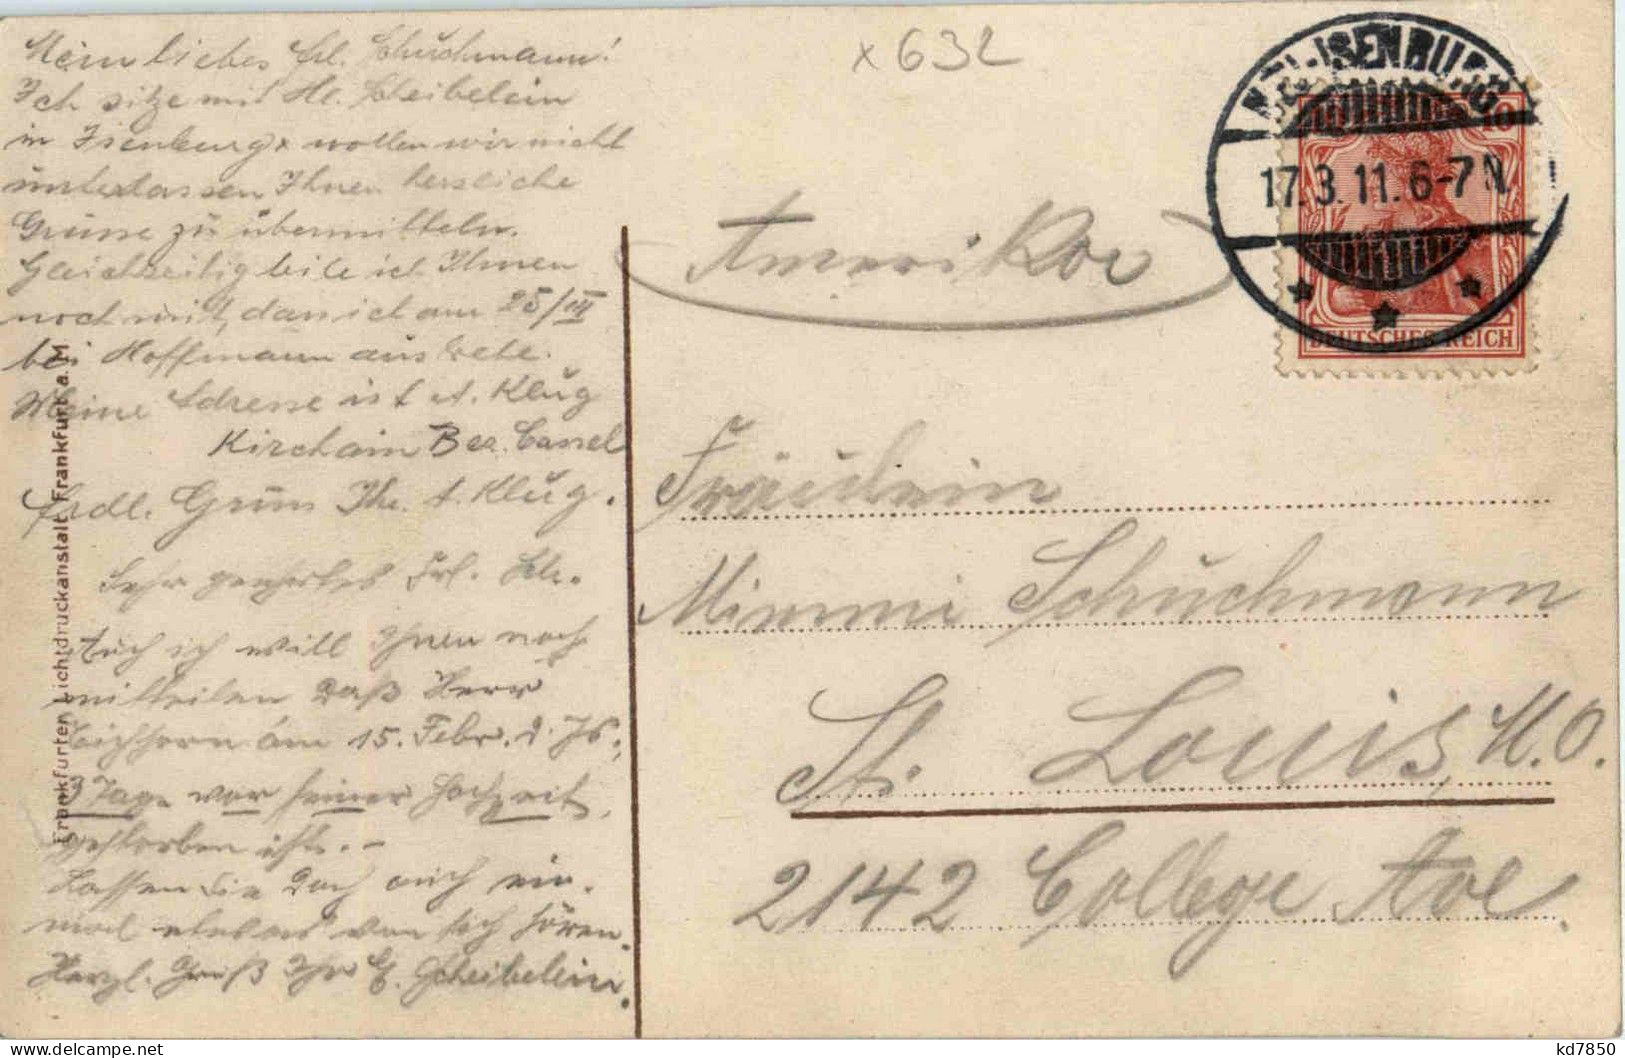 x 632
N.-ISENBURG
17.3.11.6-7N.
10
DEUTSCHES REICH
Mein liebes Frl. Schuchmann!
Ich sitze mit Hr. Scheibelein
in Isenburg wollen wir nicht
unterlassen Ihnen herzliche
Grüsse zu übermitteln.
Gleichzeitig teile ich Ihnen
noch mit, dass ich am 25/III
bei Hoffmann austrete.
Meine Adresse ist A. Klug
Kirchain Bez. Cassel
Frdl. Gruss Ihr A. Klug.
Sehr geehrtes Frl. Sch.
Auch ich will Ihnen noch
mitteilen daß Herr
Eichhorn am 15. Febr. d. Js.,
3 Tage vor seiner Hochzeit,
gestorben ist. -
Lassen Sie doch auch ein-
mal etwas von sich hören.
Herzl. Gruß Ihr G. Scheibelein.
Frankfurter Lichtdruckanstalt Frankfurt a. M
Amerika
Fräulein
Minni Schuchmann
St. Louis, M.O.
2142 College Ave.
kd7850